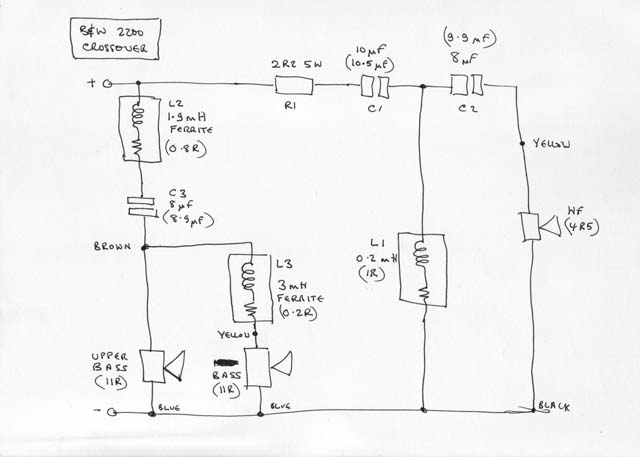 B&W 2200
CROSSOVER
+
2R2 5W
R1
10μF
(10.5μF)
C1
(9.9μF)
8μF
C2
YELLOW
L2
1.9mH
FERRITE
(0.8R)
C3
8μF
(8.9μF)
BROWN
L3
3mH
FERRITE
(0.2R)
YELLOW
L1
0.2mH
(1R)
HF
(4R5)
UPPER
BASS
(11R)
BASS
(11R)
-
BLUE
BLUE
BLACK